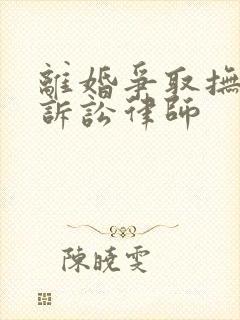 離婚爭取撫
訴訟律師
陳曉雯